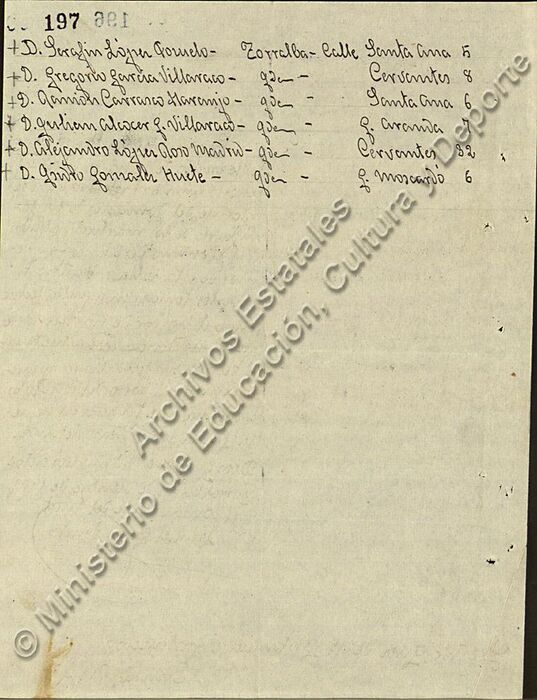 197 196
+ D. Serafin López Pozuelo - Torralba - Calle Santa Ana 5
+ D. Gregorio García Villaraco - iden - Cervantes 8
+ D. Ramón Carrasco Naranjo - iden - Santa Ana 6
+ D. Julian Alcocer G. Villaraco - iden - G. Aranda 7
+ D. Alejandro López Oso Madrid - iden - Cervantes 32
+ D. Gonzalez Huete - iden - G. Moscardó 6
© Ministerio de Educación, Cultura y Deporte
Archivos Estatales